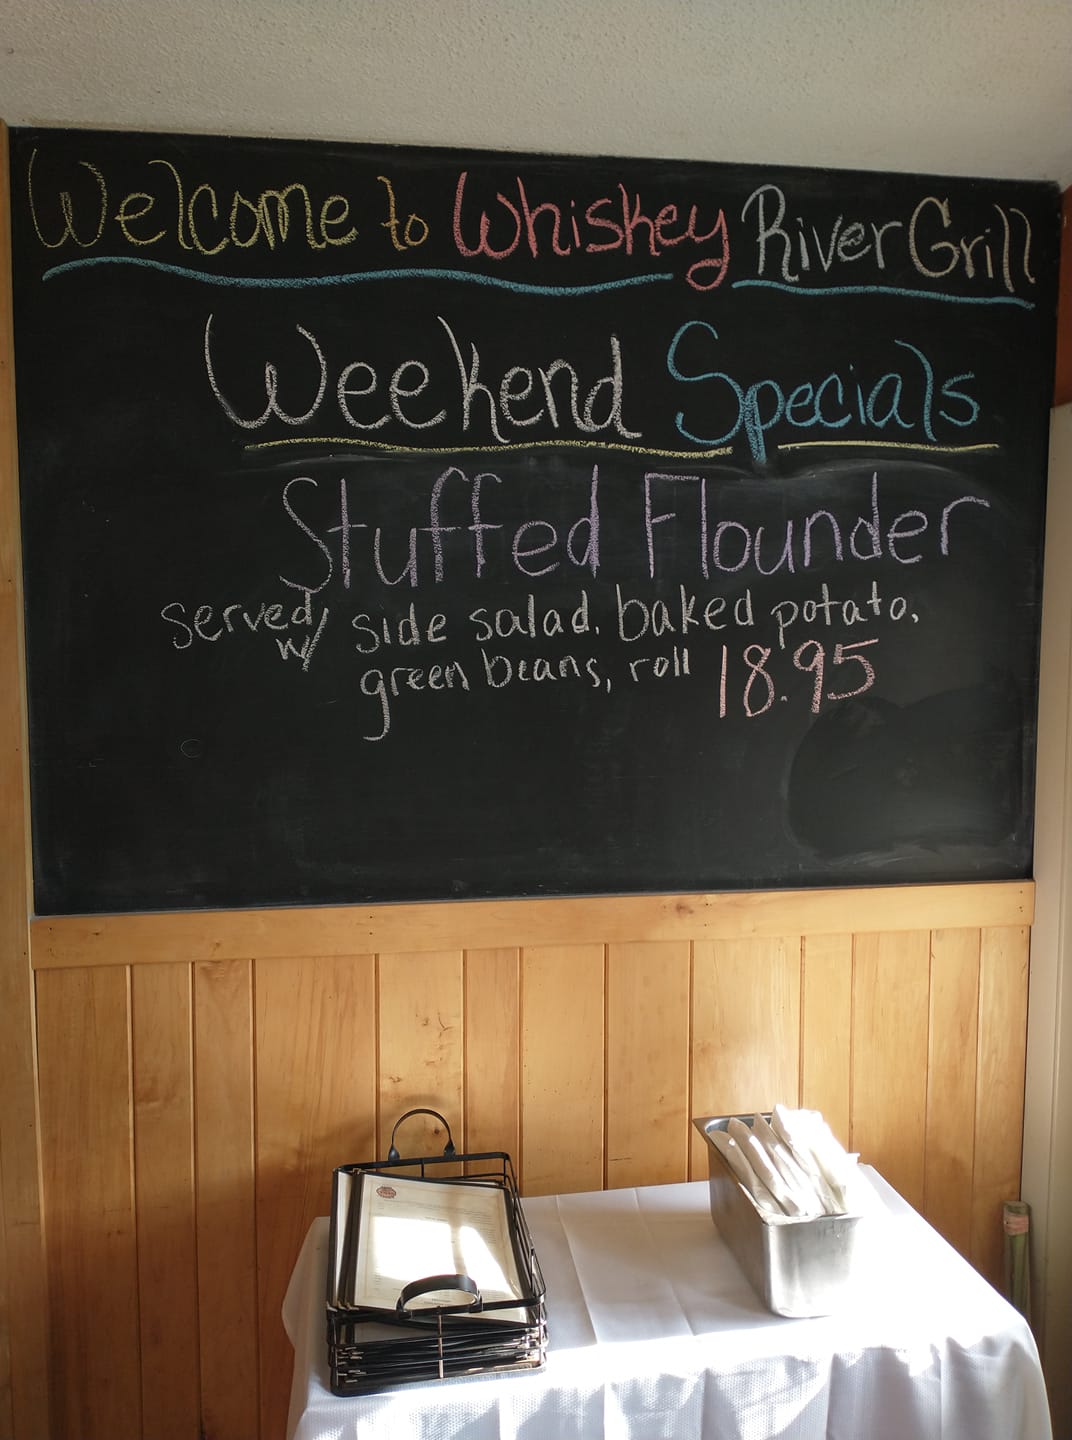 Welcome to Whiskey River Grill
Weekend Specials
Stuffed Flounder
served w/ side salad, baked potato,
green beans, roll 18.95